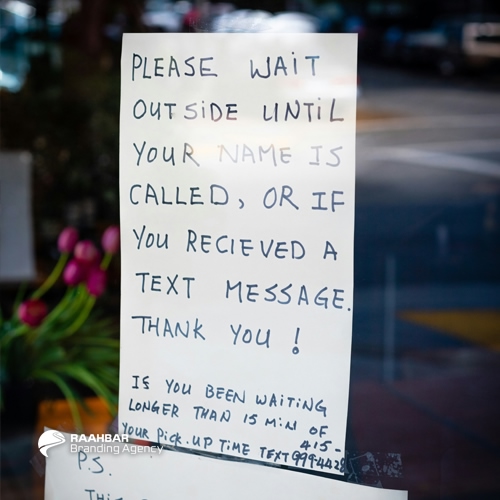 PLEASE WAIT
OUTSIDE UNTIL
YOUR NAME IS
CALLED, OR IF
YOU RECIEVED A
TEXT MESSAGE.
THANK YOU !
IF YOU BEEN WAITING
LONGER THAN 15 MIN OF
YOUR PICK.UP TIME TEXT 415-
999-4428
RAAHBAR
Branding Agency
P.S.